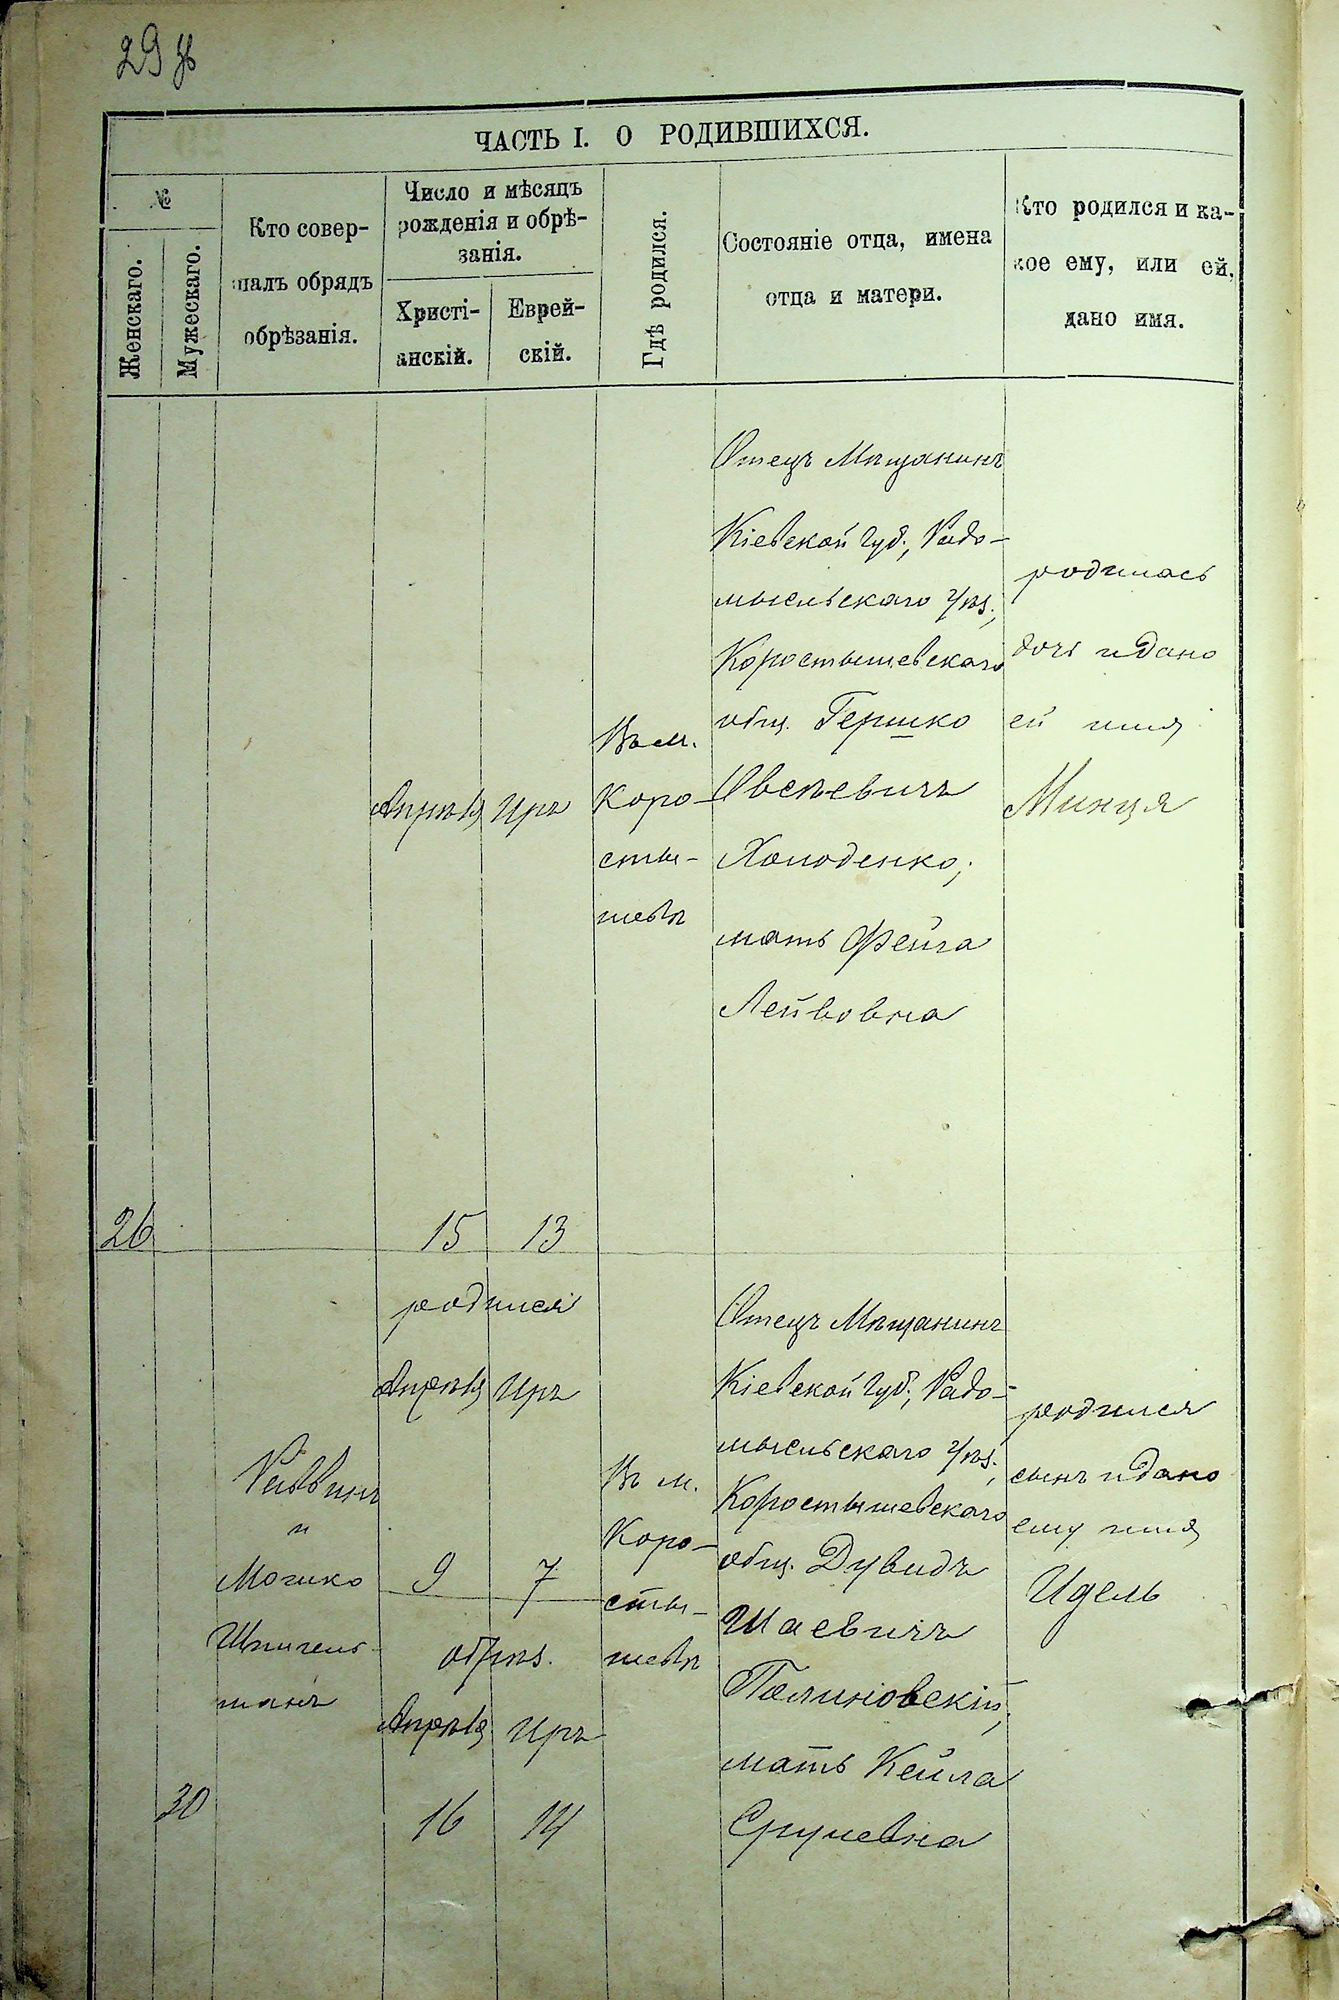 29 об
ЧАСТЬ I. О РОДИВШИХСЯ.
№
Женскаго.
Мужескаго.
Кто совер-
шалъ обрядъ
обрѣзанія.
Число и мѣсяцъ
рожденія и обрѣ-
занія.
Христі-
анскій.
Еврей-
скій.
Гдѣ родился.
Состояніе отца, имена
отца и матери.
Кто родился и ка-
кое ему, или ей,
дано имя.
26
Апрѣля
15
Иръ
13
Въ м.
Коро-
сты-
шевѣ
Отецъ Мѣщанинъ
Кіевской Губ., Радо-
мысльскаго уѣз.,
Коростышевскаго
общ. Гершко
Овсѣевичъ
Холоденко,
мать Фейга
Лейвовна
родилась
дочь и дано
ей имя
Минця
30
и
Мошко
Шпигель-
манъ
родился
Апрѣля Иръ
9 7
обрѣз.
Апрѣля Иръ
16 14
Въ м.
Коро-
сты-
шевѣ
Отецъ Мѣщанинъ
Кіевской Губ., Радо-
мысльскаго уѣз.,
Коростышевскаго
общ. Дувидъ
Шаевичъ
Полиновскій,
мать Кейла
Срулевна
родился
сынъ и дано
ему имя
Идель